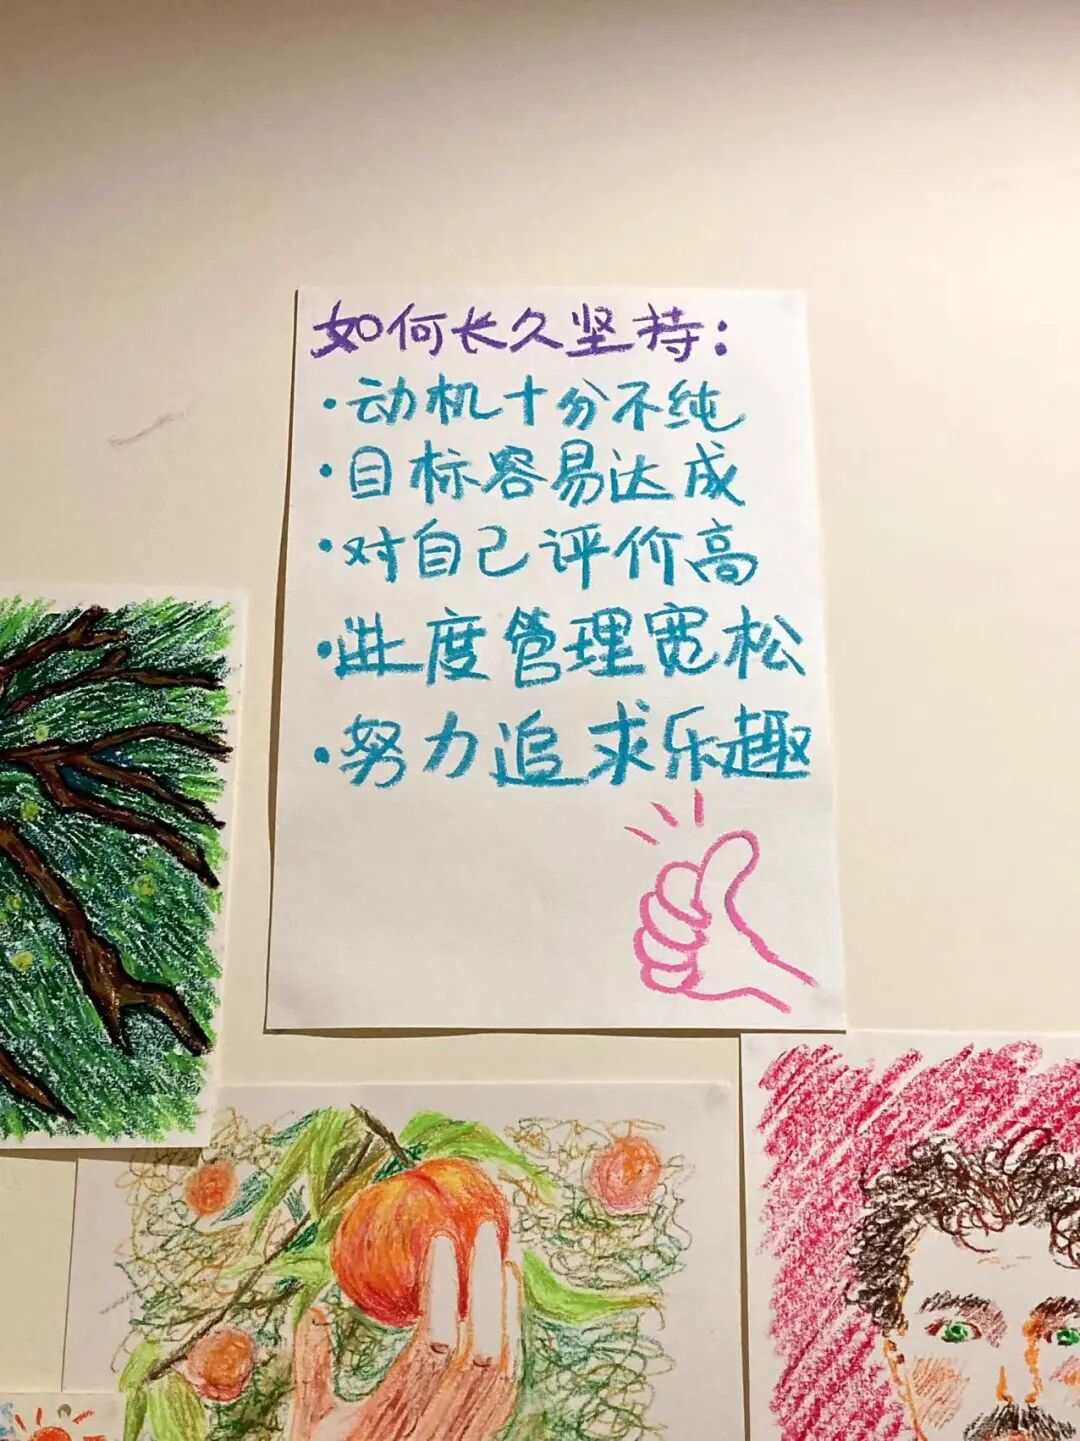 如何长久坚持:
·动机十分不纯
·目标容易达成
·对自己评价高
·进度管理宽松
·努力追求乐趣